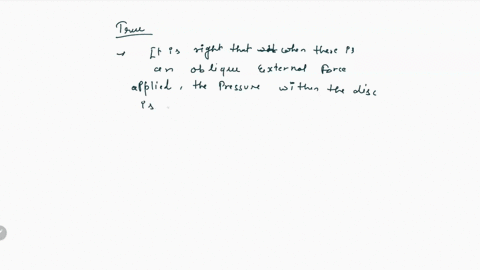 True
→ It is right that when there is
an oblique External Force
applied, the Pressure within the disc
is